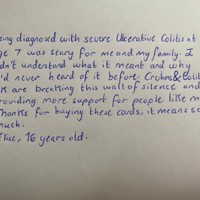 ing diagnosed with severe Ulcerative Colitis at
ge 7 was scary for me and my family. I
dn't understand what it meant and why
'd never heard of it before. Crohn's & Colit
K are breaking this wall of silence and
roviding more support for people like m
Thanks for buying these cards, it means so
much.
lise, 16 years old.